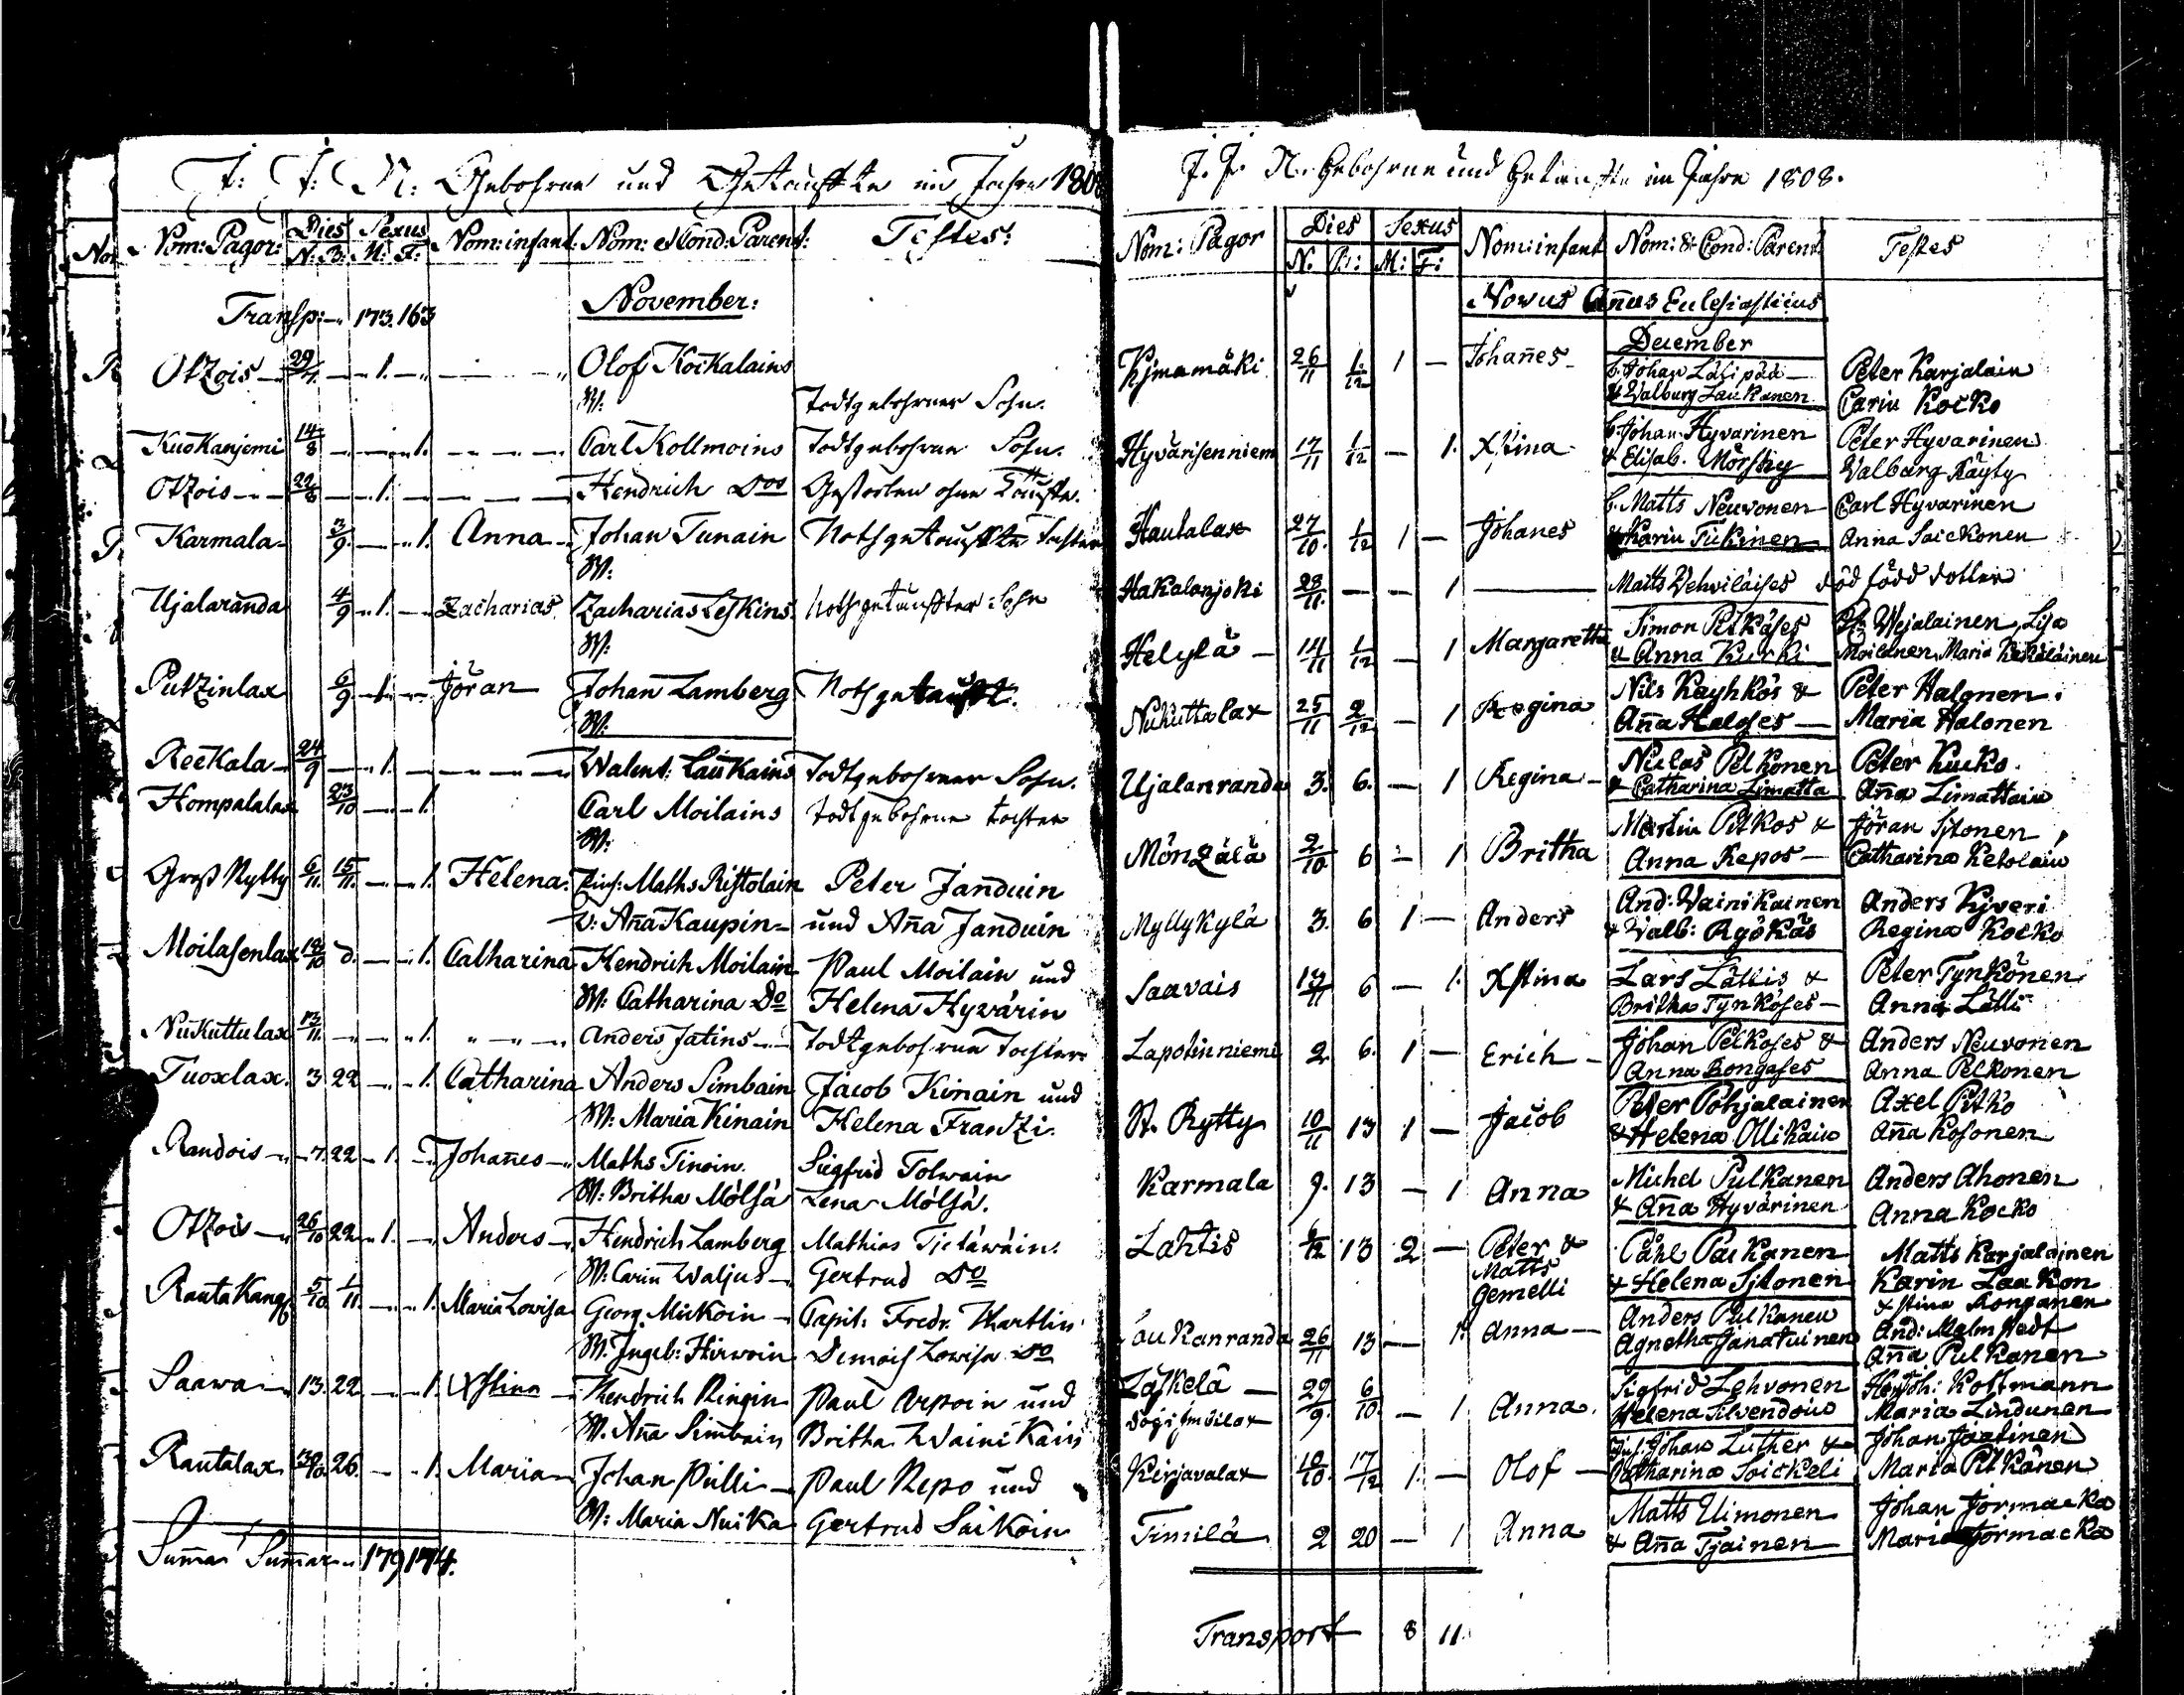 J: J: N: Gebohrne und Getaufte im Jahre 1808
Nom: Pagor: Dies Sexus Nom: infant: Nom: et Cond: Parent: Testes:
N: B: M: F:
Transp: 173. 163 November:
Otzois 1. Olof Kockalains
W: Todtgebohrner Sohn.
Kuokanjemi 14/8 1. Carl Kollmoins Todtgebohrne Sohn.
Otzois 29/8 1. Hendrich Do Gestorben ohne Taufe.
Karmala 3/9. 1. Anna Johan Tunain Nothgetaufte Tochter
W:
Ujalaranda 4/9 1. Zacharias Zacharias Leskins Nothgetaufter Sohn
W:
Putzinlax 6/9 1. Jöran Johan Lamberg Nothgetauft.
W:
Reckala 24/9 1. Walent: Laukains Todtgebohrner Sohn.
Hompalalax 23/10 1. Carl Moilains Todtgebohrne tochter
W:
Groß Rytty 6/11. 15/11. 1. Helena Maths Ristolain Peter Janduin
v: Aña Kaupin und Aña Janduin
Moilasenlax 18/10 d. 1. Catharina Hendrich Moilain Paul Moilain und
W: Catharina Do Helena Hyvärin
Nukuttulax 13/11. 1. Anders Jatins Todtgebohrne Tochter
Tuoxlax. 3 22 1. Catharina Anders Simbain Jacob Kinain und
W: Maria Kinain Helena Frantzi.
Randois 7. 22 1. Johañes Maths Tinoin. Siegfrid Tolwain
W: Britha Mölsä Lena Mölsä.
Otzois 26/10 22 1. Anders Hendrich Lamberg Mathias Tietäwäin.
W: Carin Waljus Gertrud Do
Rautakang 5/10 1/11. 1. Maria Lovisa Georg Mickoin Capit: Fredr. Hartlin
W: Ingeb: Hirwoin Demois Lowisa Do
Saawa 13. 22 1. Xstina Hendrich Ringin Paul Repoin und
W: Aña Simbain Britha Wainikain
Rautalax 30/10. 26. 1. Maria Johan Pulli Paul Repo und
W: Maria Nuika Gertrud Saikoin
Suma Sumar 179 174.
J. J. N. Gebohrne und Getaufte im Jahre 1808.
Nom: Pagor Dies Sexus Nom: infant Nom: & Cond: Parent Testes
N. B: M: F:
Novus Añus Eclesiasticus
December
Kjmamäki 26/11 1/12 1 — Johañes b. Johan Lälipää Peter Karjalain
& Walburg Laukanen Carin Kocko
Hyvärisenniem 17/11 1/12 — 1. Xstina b. Johan Hyvarinen Peter Hyvarinen
& Elisab. Mörsky Valbarg Käyty
Hautalax 27/10. 1/12 1 — Johanes b. Matts Neuvonen Carl Hyvarinen
& Karin Tickinen Anna Saickonen
Hakalanjoki 28/11. — — 1 Matts Vehviläises död född dotter
Helylä 14/11 1/12 — 1 Margaretha Simon Pitkäses Wejalainen, Lisa
& Anna Kurki Moilanen, Maria Kekäläinen
Nukuttalax 25/11 2/12 — 1 Regina Nils Käyhkös & Peter Halonen.
Aña Haloses Maria Halonen
Ujalanranda 3. 6. — 1 Regina Niclas Pelkonen Peter Kucko.
& Catharina Limatta Aña Limattain
Mönzälä 2/10 6 — 1 Britha Martin Pitkos & Jöran Sitonen
Anna Repos Catharina Ketolain
Myllykylä 3. 6 1 — Anders And: Wainikainen Anders Kyveri
& Walb: Ryökäs Regina Kocko
Saavais 13/11 6 — 1. Xstina Lars Lällis & Peter Tynkönen
Britha Tynköses Anna Lälli
Lapotinniemi 2. 6. 1 — Erich Johan Pelkoses & Anders Neuvonen
Anna Rongases Anna Pelkonen
St. Rytty 10/11 13 1 — Jacob Peter Pohjalainen Axel Pitko
& Helena Ollikain Aña Kosonen
Karmala 9. 13 — 1 Anna Michel Pulkanen Anders Ahonen
& Aña Hyvärinen Anna Kocko
Lahtis 6/12 13 2 — Peter & Påhl Paukanen Matts Karjalainen
Matts & Helena Sitonen Karin Laakon
Gemelli Xstina Ronganen
Laukanranda 26/11 13 — 1. Anna Anders Pulkanen And: Malmstedt
Agnetha Janatuinen Aña Pulkanen
Läskelä 29/9. 6/10. — 1. Anna. Sigfrid Lehvonen Kottmann
Helena Silvendoin Maria Lindunen
Kirjavalax 10/10. 17/12 1. — Olof Johan Luther & Johan Jaatinen
Catharina Soickeli Maria Pitkänen
Timilä 2 20 — 1 Anna Matts Uimonen Johan Jormacka
& Aña Tjainen Maria Jormacka
Transport 8 11.